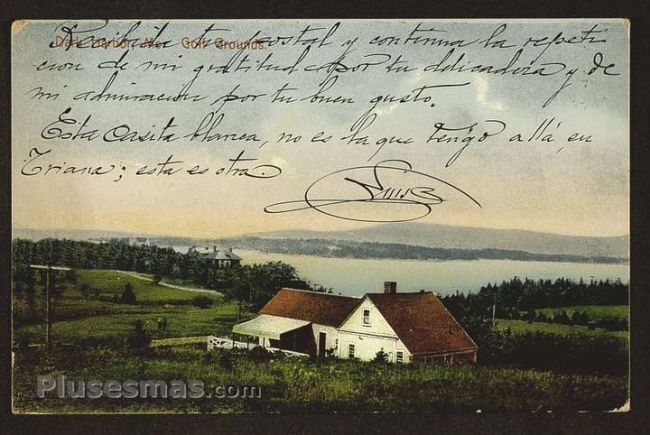 Dark Harbor, Me. Golf Grounds.
Recibida tu postal y continua la repeti
cion de mi gratitud por tu delicadeza y de
mi admiracion por tu buen gusto.
Esta Casita blanca, no es la que tengo allá, en
Triana; esta es otra.
Luis
Plusesmas.com